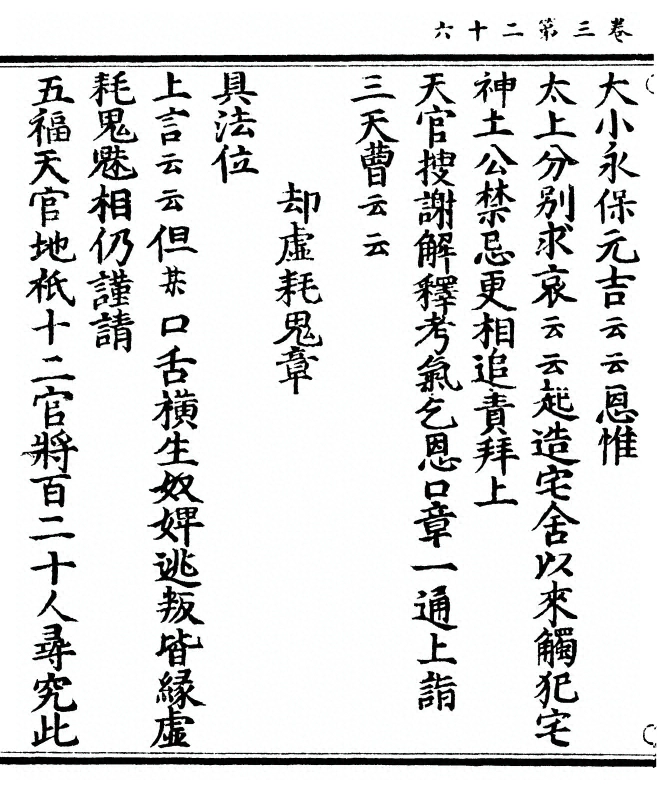 卷三第二十六
大小永保元吉云云恩惟
太上分別求哀云云起造宅舍以來觸犯宅
神土公禁忌更相追責拜上
天官搜謝解釋考氣乞恩口章一通上詣
三天曹云云
却虛耗鬼章
具法位
上言云云但某口舌橫生奴婢逃叛皆緣虛
耗鬼魅相仍謹請
五福天官地祇十二官將百二十人尋究此